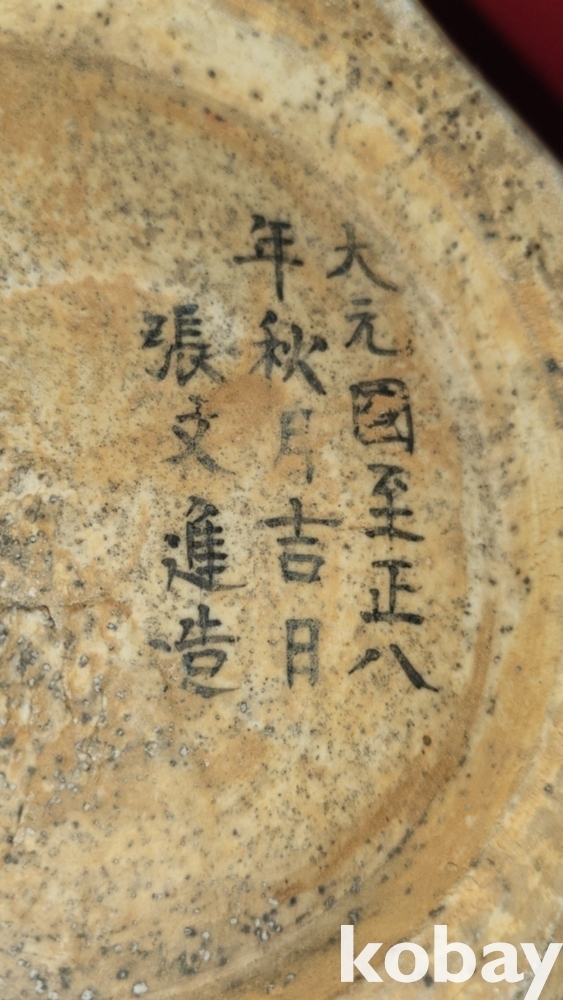 大元國至正八
年秋月吉日
張文進造
kobay